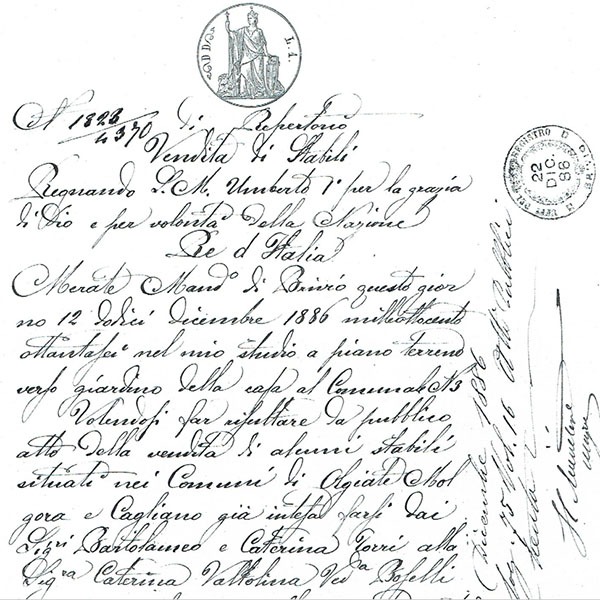 L. 1.
N 1823/4370 di Repertorio
Vendita di Stabili
Regnando S. M. Umberto I° per la grazia
di Dio e per volontà della Nazione
Re d'Italia
Merate Mand.° di Brivio questo gior
no 12 dodici dicembre 1886 milleottocento
ottantasei nel mio studio a piano terreno
verso giardino della casa al Comunale N 3
Volendosi far risultare da pubblico
atto della vendita di alcuni stabili
situati nei Comuni di Olgiate Mol
gora e Cagliano già intesa farsi dai
Sig.ri Bartolameo e Caterina Torri alla
Sig.ra Caterina Valtolina Ved.a Boselli
REGISTRO D
22
DIC.
86
dicembre 1886
fog. 75 Vol. 16 Atti Pubblici
Il Ricevitore